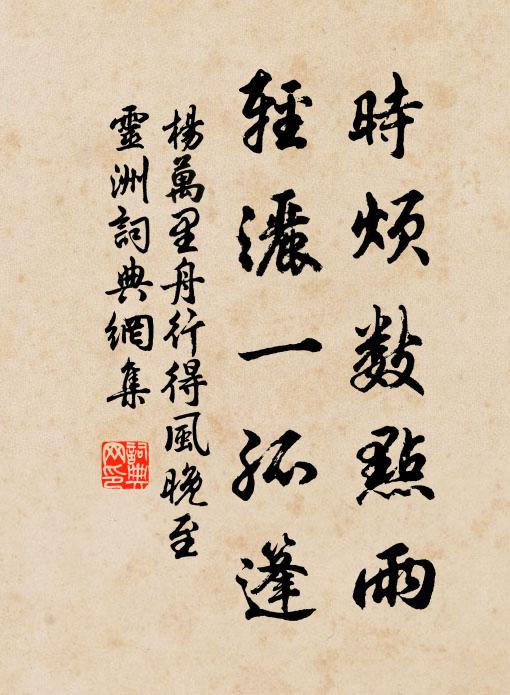 時煩數點雨
輕灑一孤篷
楊萬里舟行得風晚至
靈洲詞典網集
詞典
网印